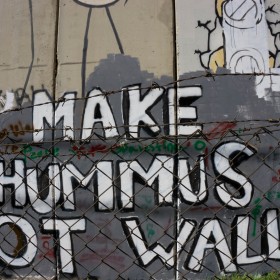 MAKE
HUMMUS
OT WALL